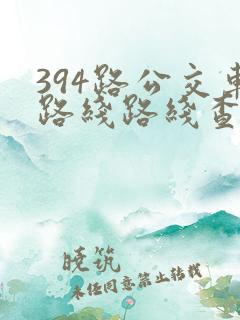 394路公交车
路线路线查
晓筑
未经同意禁止转载